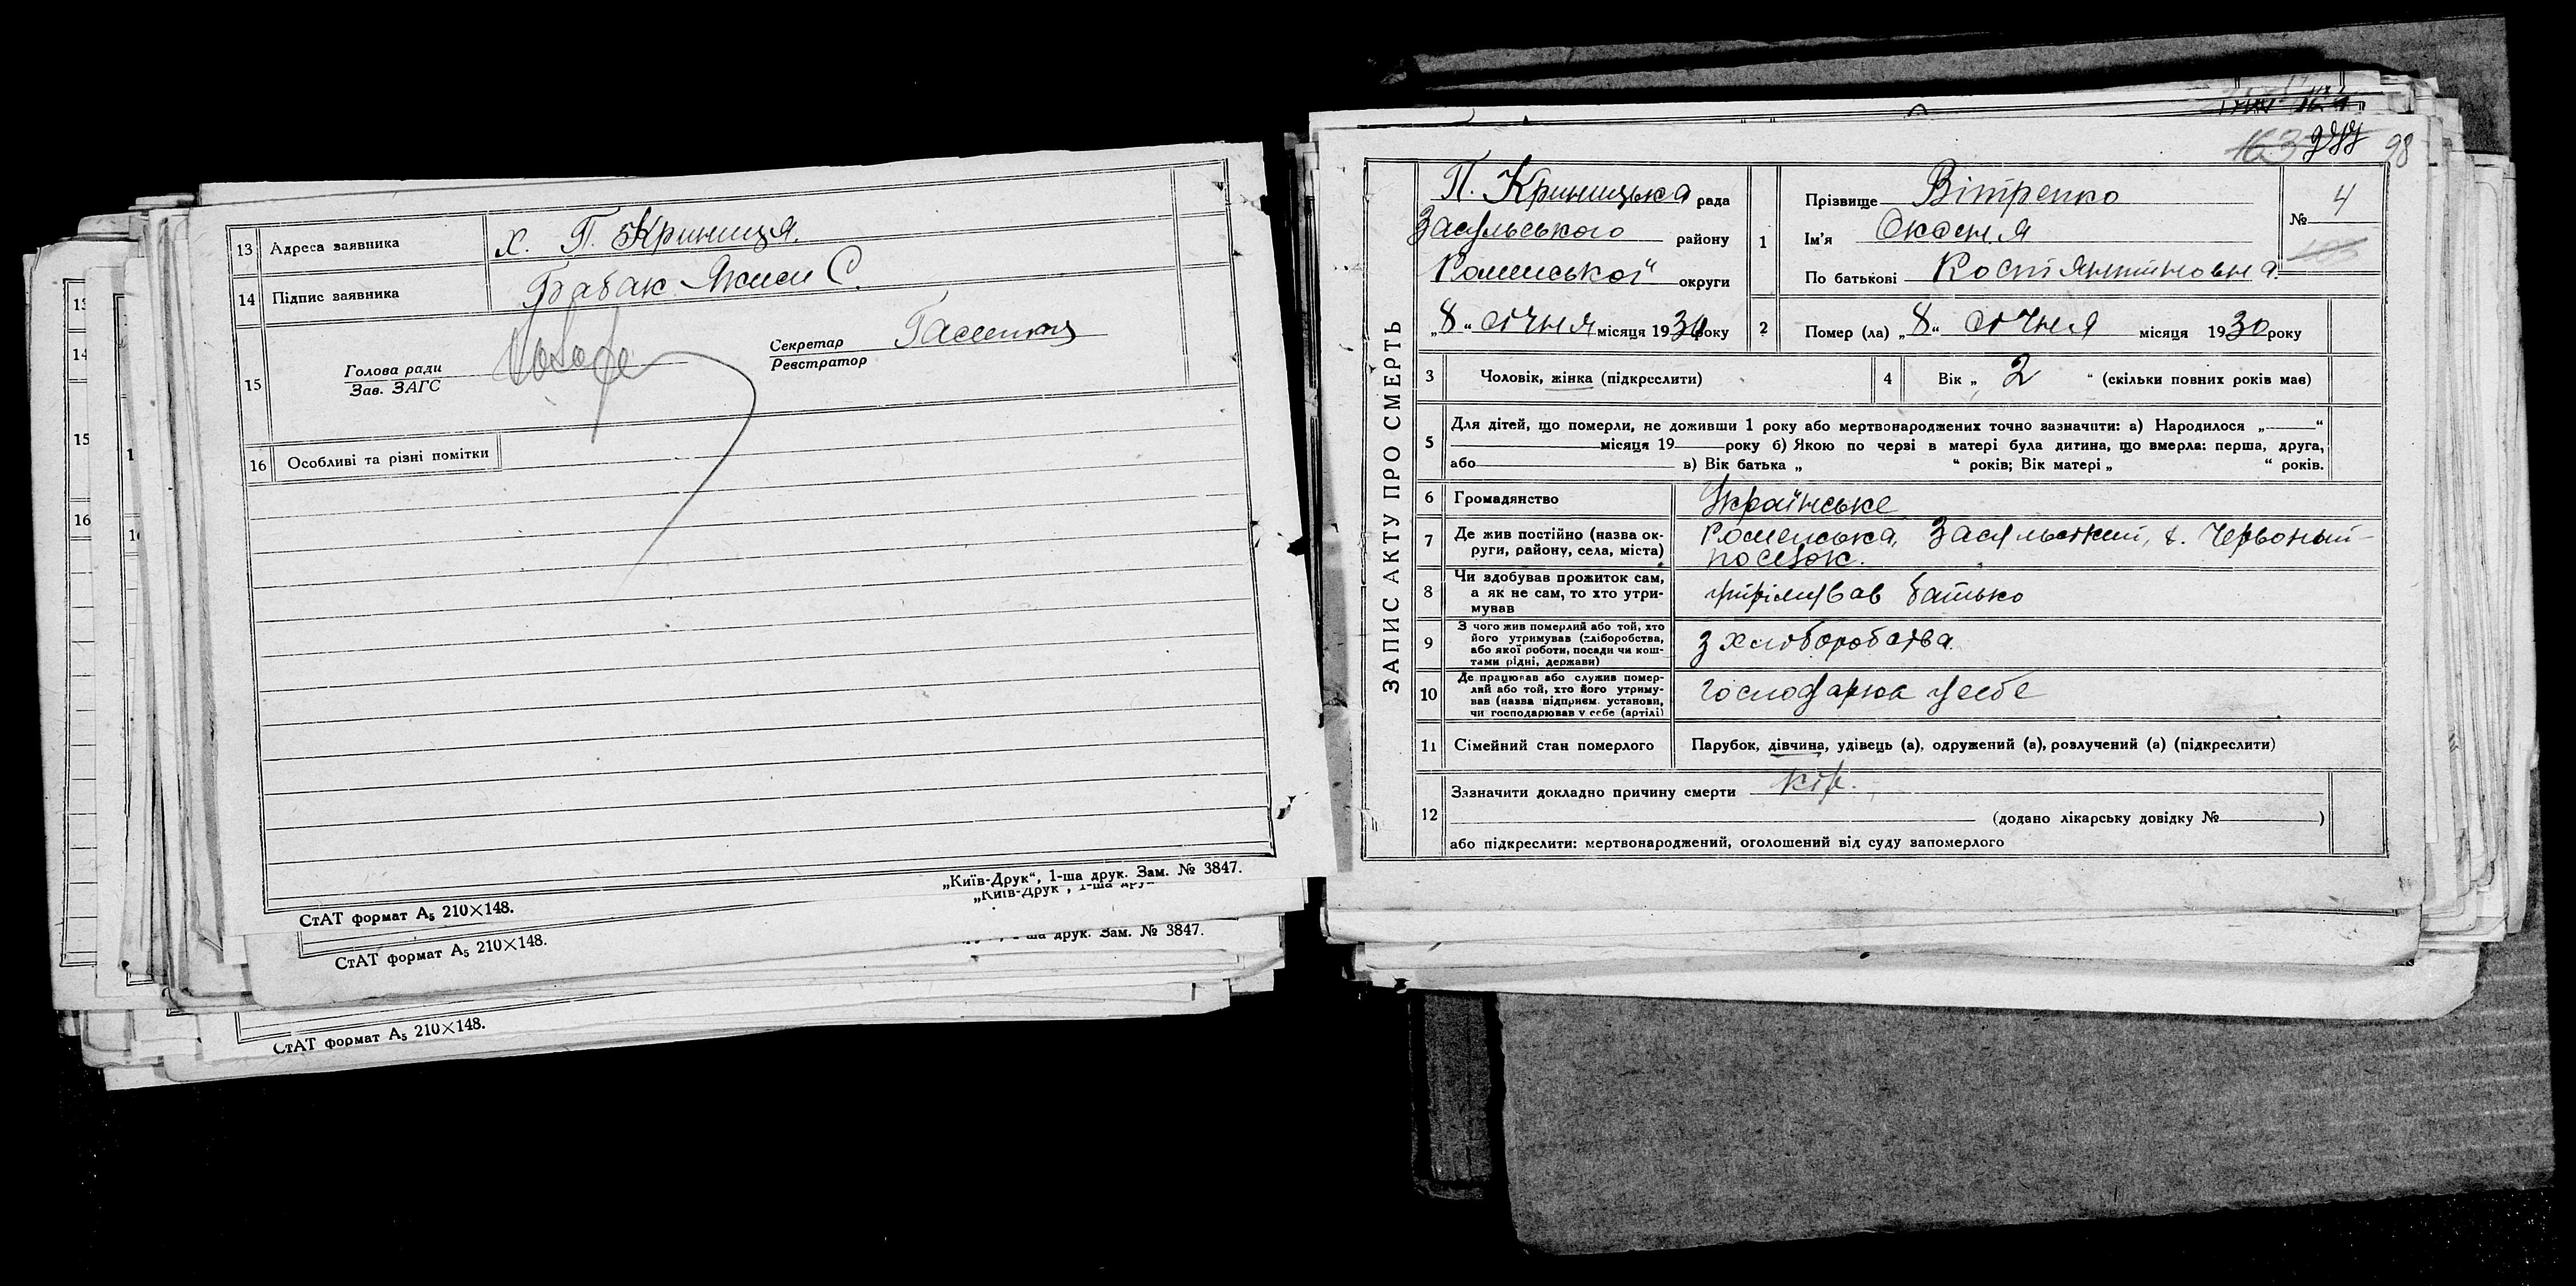 13 Адреса заявника х. П. Криниця.
14 Підпис заявника Бабак С.
15 Голова ради
Зав. ЗАГС
Секретар
Реєстратор
16 Особливі та різні помітки
СтАТ формат А5 210×148.
„Київ-Друк“, 1-ша друк. Зам. № 3847.
„Київ-Друк“, 1-ша дру
СтАТ формат А5 210×148.
ша друк. Зам. № 3847.
СтАТ формат А5 210×148.
15
14
15
16
163 98
ЗАПИС АКТУ ПРО СМЕРТЬ
П. Криницька рада
Засульського району
Роменської округи
„8“ січня місяця 1930 року
1 Прізвище Вітренко
Ім'я Оксенія
По батькові Костянтиновна
№ 4
2 Помер (ла) „8“ січня місяця 1930 року
3 Чоловік, жінка (підкреслити)
4 Вік „ 2 “ (скільки повних років мав)
5 Для дітей, що померли, не доживши 1 року або мертвонароджених точно зазначити: а) Народилося „ “
місяця 19 року б) Якою по черві в матері була дитина, що вмерла: перша, друга,
або в) Вік батька „ “ років; Вік матері „ “ років.
6 Громадянство Українське
7 Де жив постійно (назва ок-
руги, району, села, міста)
Роменська, Засульський, х. Червоный-
посьолок.
8 Чи здобував прожиток сам,
а як не сам, то хто утри-
мував
утрімував батько
9 З чого жив померлий або той, хто
його утримував (хліборобства,
або якої роботи, посади чи кош-
тами рідні, держави)
з хліборобства.
10 Де працював або служив помер-
лий або той, хто його утриму-
вав (назва підприєм. установи,
чи господарював у себе (артілі)
господарює у себе
11 Сімейний стан померлого Парубок, дівчина, удівець (а), одружений (а), розлучений (а) (підкреслити)
12 Зазначити докладно причину смерти кір.
(додано лікарську довідку № )
або підкреслити: мертвонароджений, оголошений від суду запомерлого